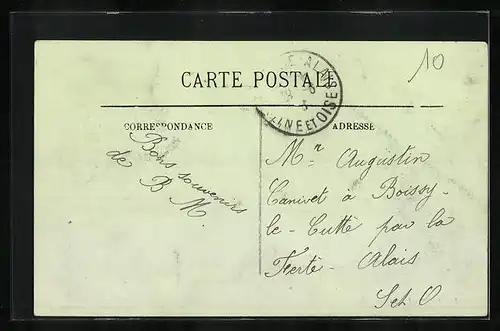 10
CARTE POSTALE
CORRESPONDANCE
ADRESSE
Bons souvenirs
de B M.
Mr Augustin
Canivet à Boissy-
le-Cutté par la
Ferté-Alais
S et O
ALAIS
NE ET OISE